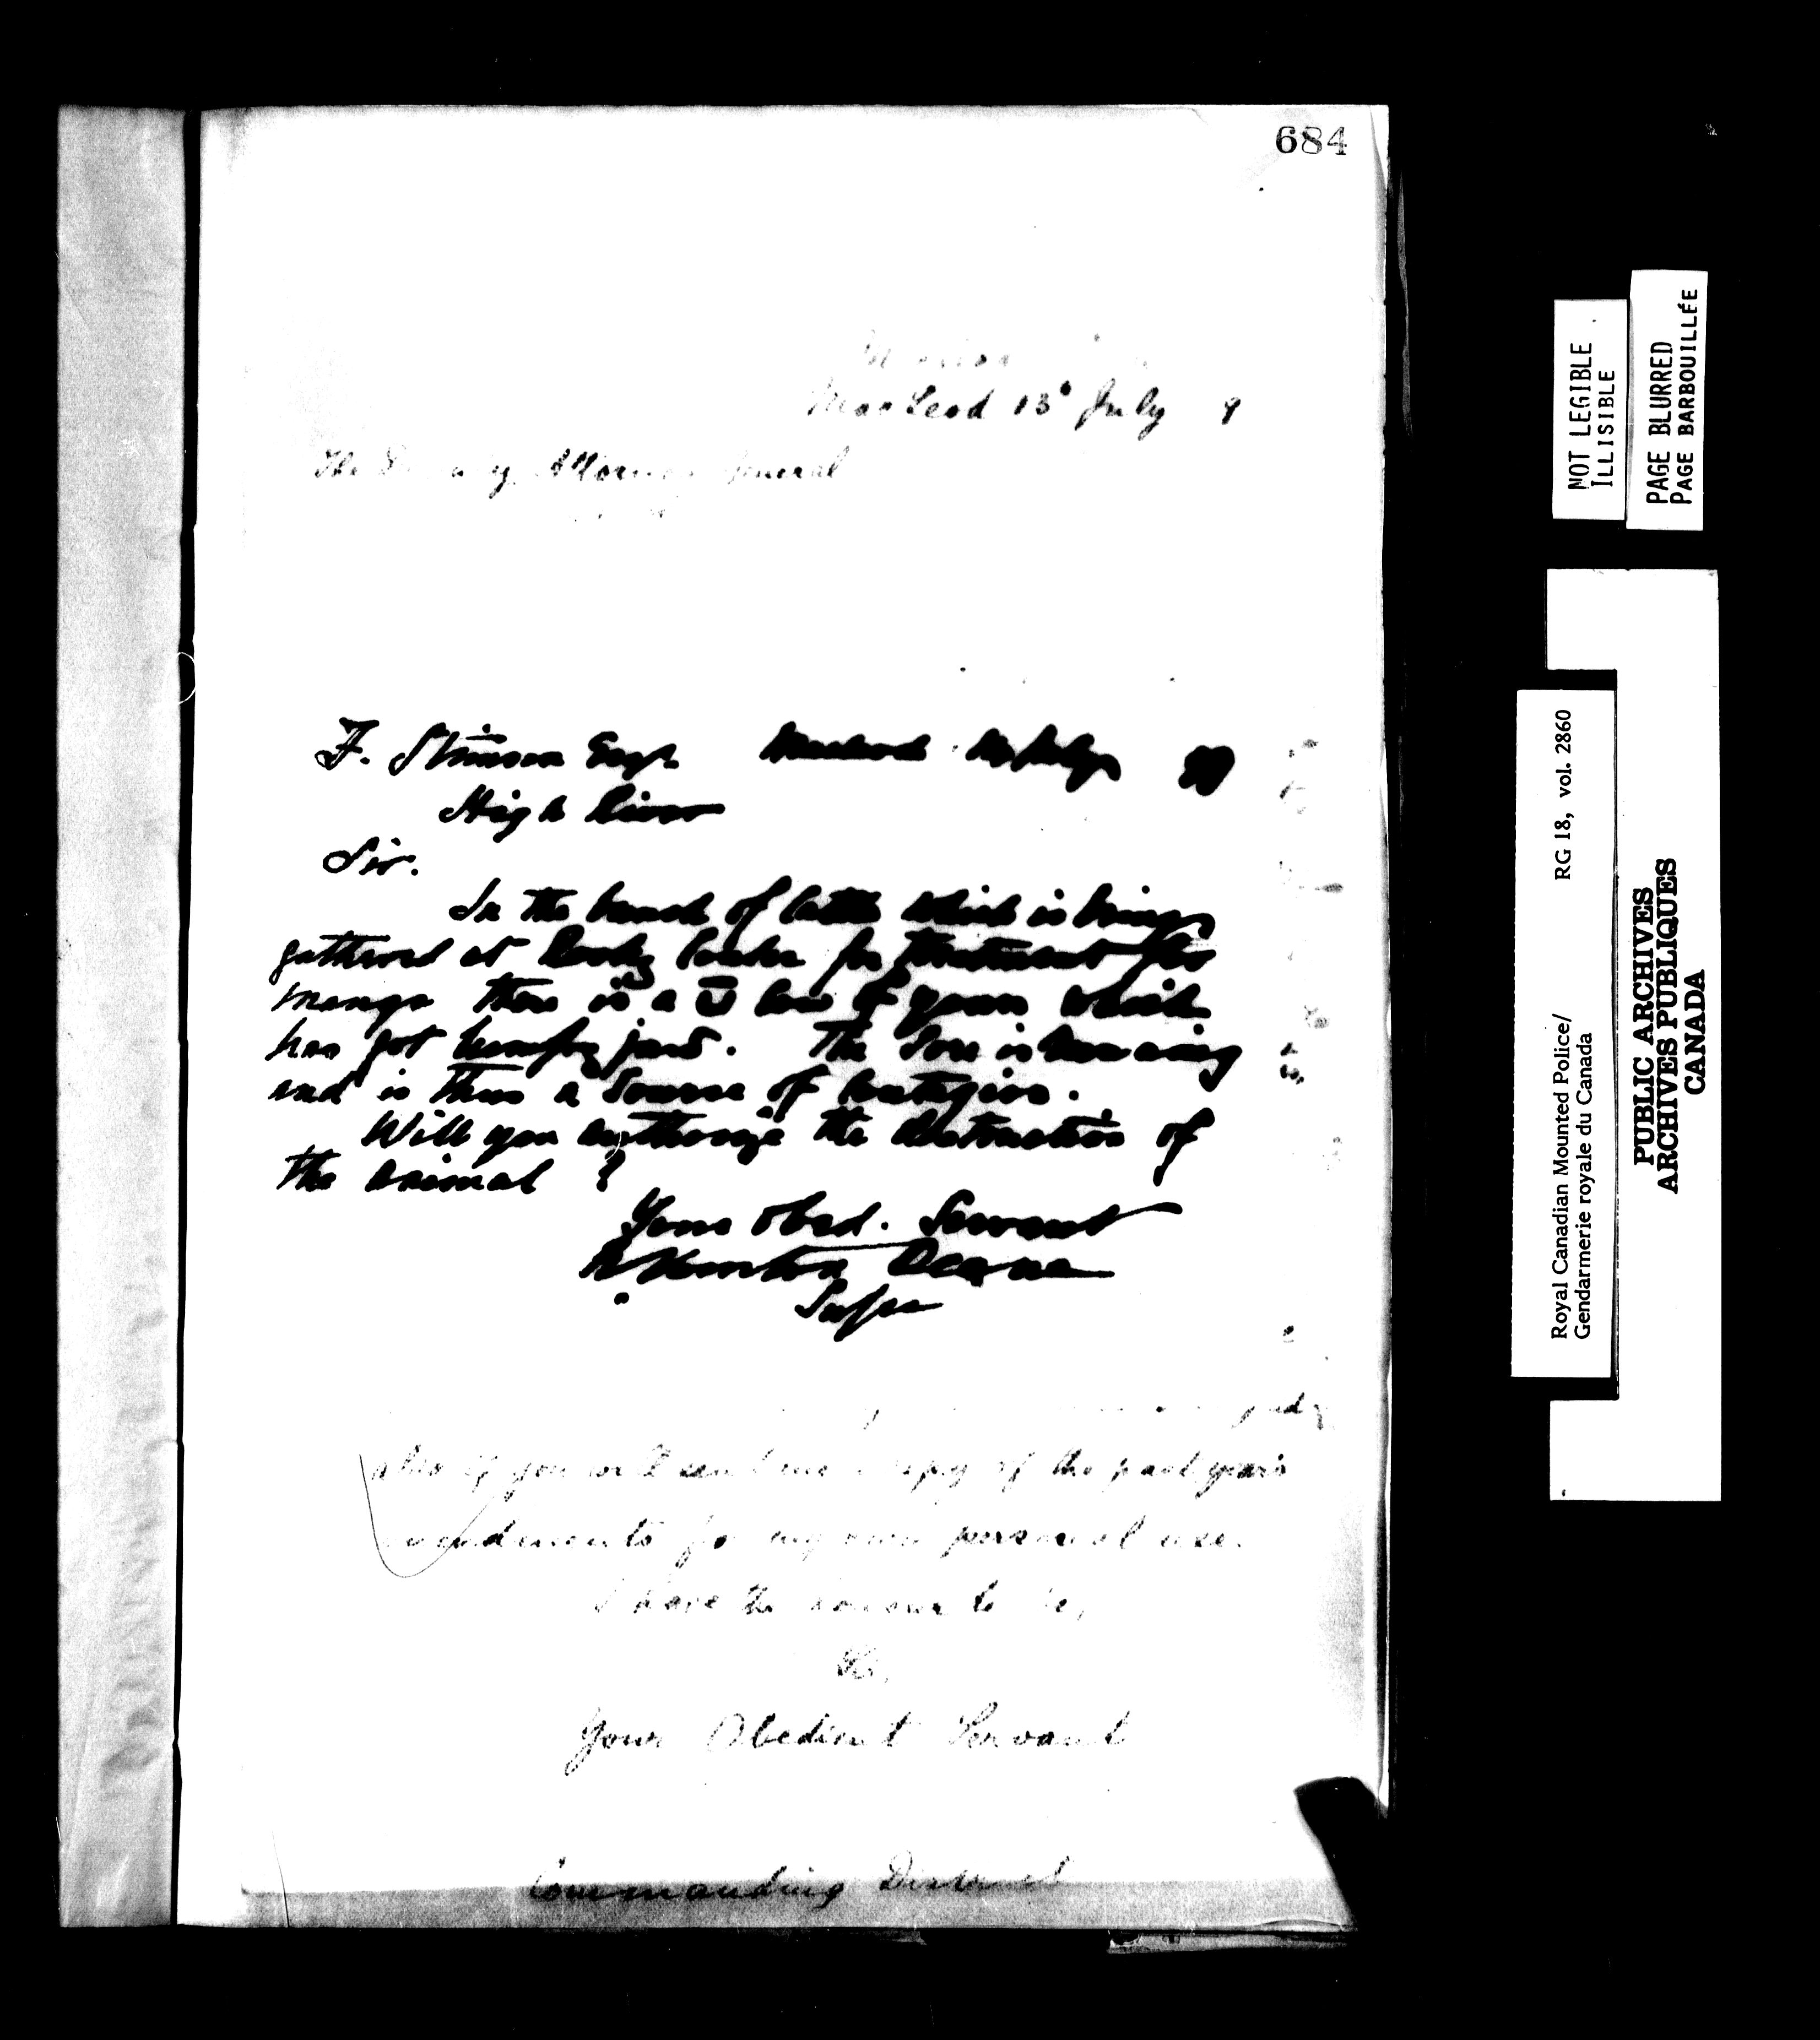 684
Macleod 13 July 9
The Attorney General
F. Stimson Esqr. Macleod July 99
High River
Sir.
In the bunch of cattle which is being
gathered at for treatment for
mange there is a cow of yours which
has got lumpy jaw. The Sore is running
and is thus a Source of Contagion.
Will you authorize the destruction of
the animal?
Your Obed. Servant
R Burton Deane
Supt
also if you will send me copy of the past years
amendments for my own personal use.
I have the honour to be,
Sir,
Your Obedient Servant
Commanding District
NOT LEGIBLE
ILLISIBLE
PAGE BLURRED
PAGE BARBOUILLÉE
Royal Canadian Mounted Police/ RG 18, vol. 2860
Gendarmerie royale du Canada
PUBLIC ARCHIVES
ARCHIVES PUBLIQUES
CANADA